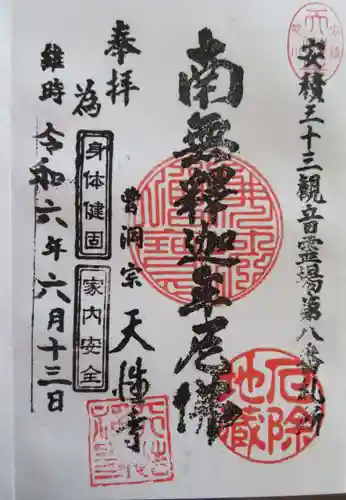 安積三十三觀音霊場第八番札所
南無釋迦牟尼佛
奉拝
曹洞宗 天性寺
為
身体健固
家内安全
維時 令和六年六月十三日
厄除地蔵